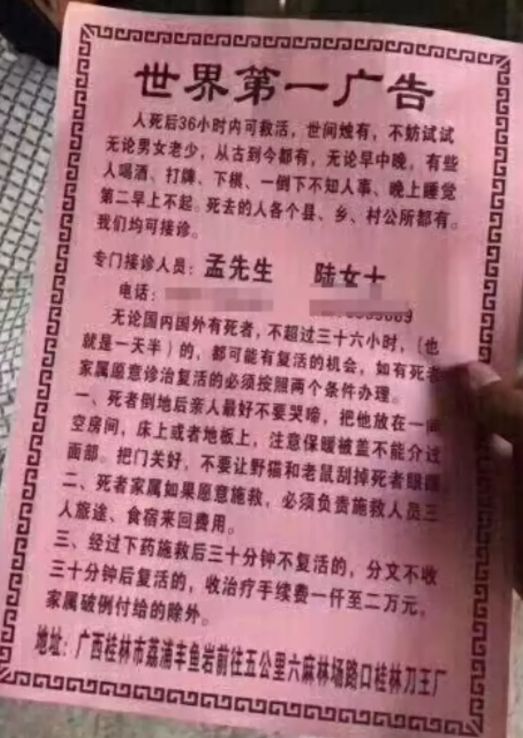 世界第一广告
人死后36小时内可救活，世间烛有，不妨试试
无论男女老少，从古到今都有，无论早中晚，有些
人喝酒、打牌、下棋、一倒下不知人事、晚上睡觉
第二早上不起。死去的人各个县、乡、村公所都有。
我们均可接诊。
专门接诊人员：孟先生 陆女士
电话：
无论国内国外有死者，不超过三十六小时，（也
就是一天半）的，都可能有复活的机会，如有死者
家属愿意诊治复活的必须按照两个条件办理。
一、死者倒地后亲人最好不要哭啼，把他放在一间
空房间，床上或者地板上，注意保暖被盖不能介过
面部。把门关好，不要让野猫和老鼠刮掉死者眼圈
二、死者家属如果愿意施救，必须负责施救人员三
人旅途、食宿来回费用。
三、经过下药施救后三十分钟不复活的，分文不收
三十分钟后复活的，收治疗手续费一仟至二万元。
家属破例付给的除外。
地址：广西桂林市荔浦丰鱼岩前往五公里六麻林场路口桂林刀王厂